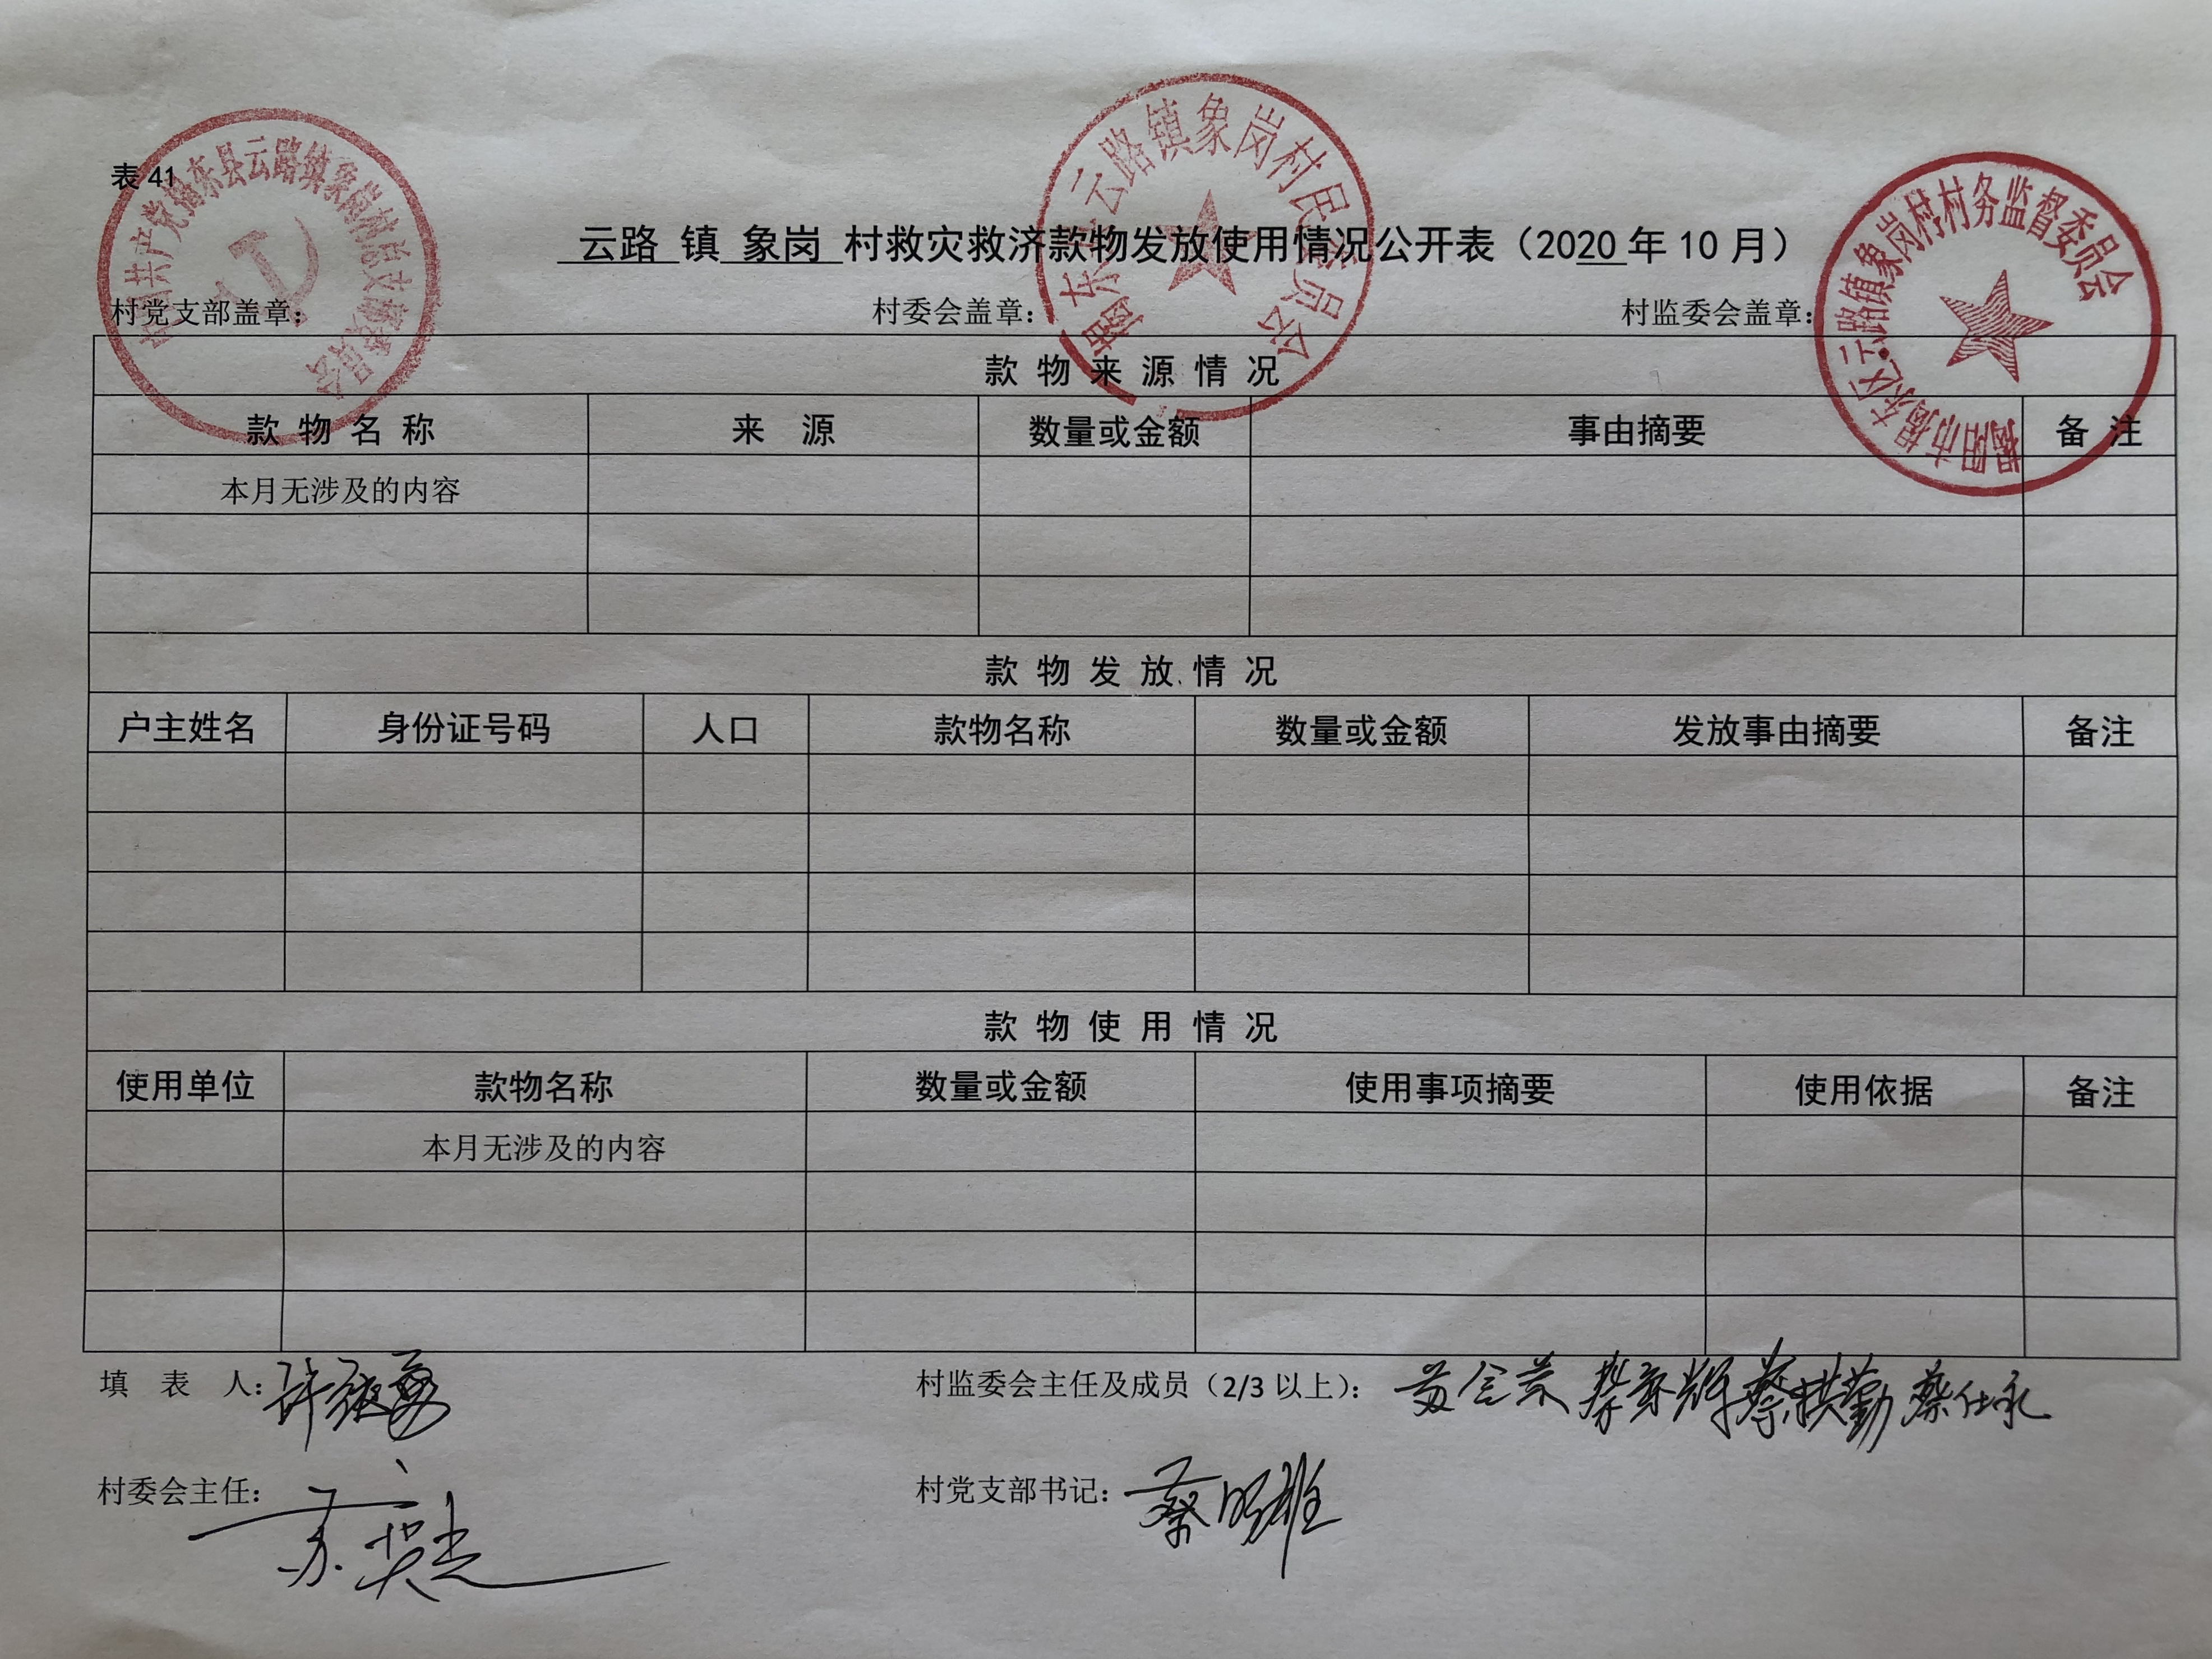 表 41
云路 镇 象岗 村救灾救济款物发放使用情况公开表（2020 年 10 月）
村党支部盖章： 村委会盖章： 村监委会盖章：
中国共产党揭东县云路镇象岗村总支部委员会
揭东县云路镇象岗村民委员会
揭阳市揭东区云路镇象岗村村务监督委员会
款 物 来 源 情 况
款 物 名 称 来 源 数量或金额 事由摘要 备 注
本月无涉及的内容
款 物 发 放 情 况
户主姓名 身份证号码 人口 款物名称 数量或金额 发放事由摘要 备注
款 物 使 用 情 况
使用单位 款物名称 数量或金额 使用事项摘要 使用依据 备注
本月无涉及的内容
填 表 人： 村监委会主任及成员（2/3 以上）： 蔡仕永
村委会主任： 村党支部书记： 蔡明雄